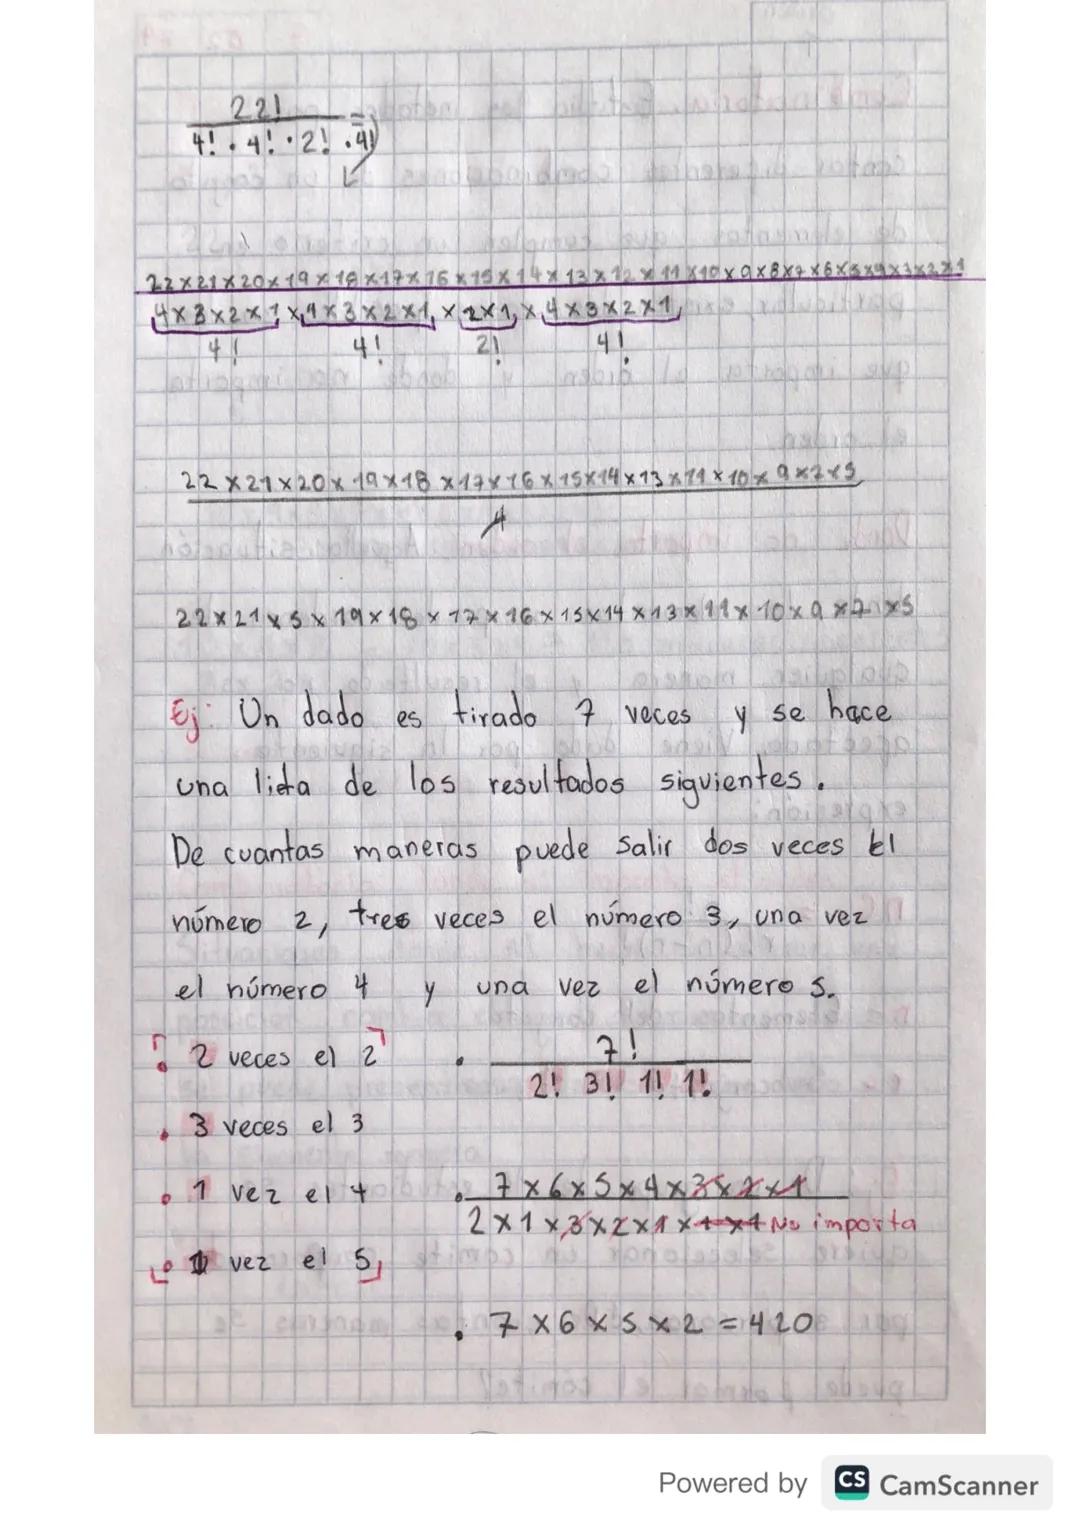 22!
4! · 4! · 2! · 4! =
22×21×20×19×18×17×16×15×14×13×12×11×10×9×8×7×6×5×4×3×2×1
4×3×2×1 × 4×3×2×1 × 2×1 × 4×3×2×1
4! 4! 2! 4!
22×21×20×19×18×17×16×15×14×13×11×10×9×2×5
4
22×21×5×19×18×17×16×15×14×13×11×10×9×2×5
Ej: Un dado es tirado 7 veces y se hace
una lista de los resultados siguientes.
De cuantas maneras puede salir dos veces El
número 2, tres veces el número 3, una vez
el número 4 y una vez el número 5.
• 2 veces el 2 • 7!
2! 3! 1! 1!
• 3 veces el 3
• 1 vez el 4 • 7×6×5×4×3×2×1
2×1×3×2×1×1×1 No importa
• 1 vez el 5
• 7×6×5×2=420
Powered by CS CamScanner